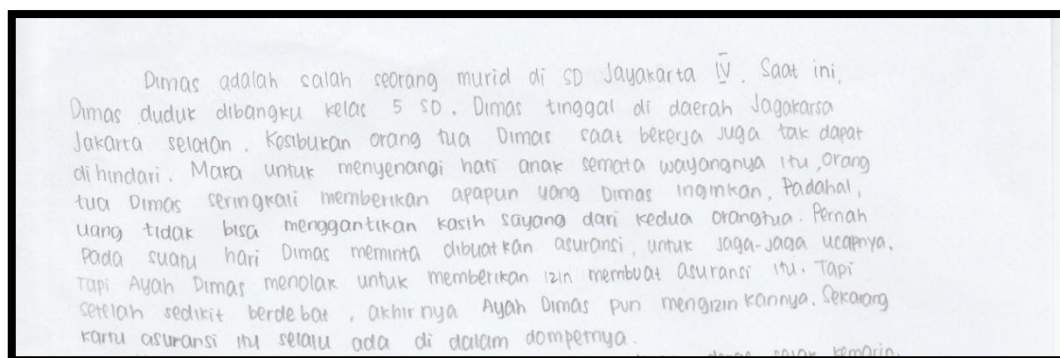 Dimas adalah salah seorang murid di SD Jayakarta IV. Saat ini,
Dimas duduk dibangku kelas 5 SD. Dimas tinggal di daerah Jagakarsa
Jakarta selatan. Kesibukan orang tua Dimas saat bekerja juga tak dapat
di hindari. Maka untuk menyenangi hati anak semata wayangnya itu, orang
tua Dimas seringkali memberikan apapun yang Dimas inginkan. Padahal,
uang tidak bisa menggantikan kasih sayang dari kedua orangtua. Pernah
pada suatu hari Dimas meminta dibuatkan asuransi, untuk jaga-jaga ucapnya.
Tapi Ayah Dimas menolak untuk memberikan izin membuat asuransi itu. Tapi
setelah sedikit berdebat, akhirnya Ayah Dimas pun mengizinkannya. Sekarang
kartu asuransi itu selalu ada di dalam dompetnya.
kemarin,